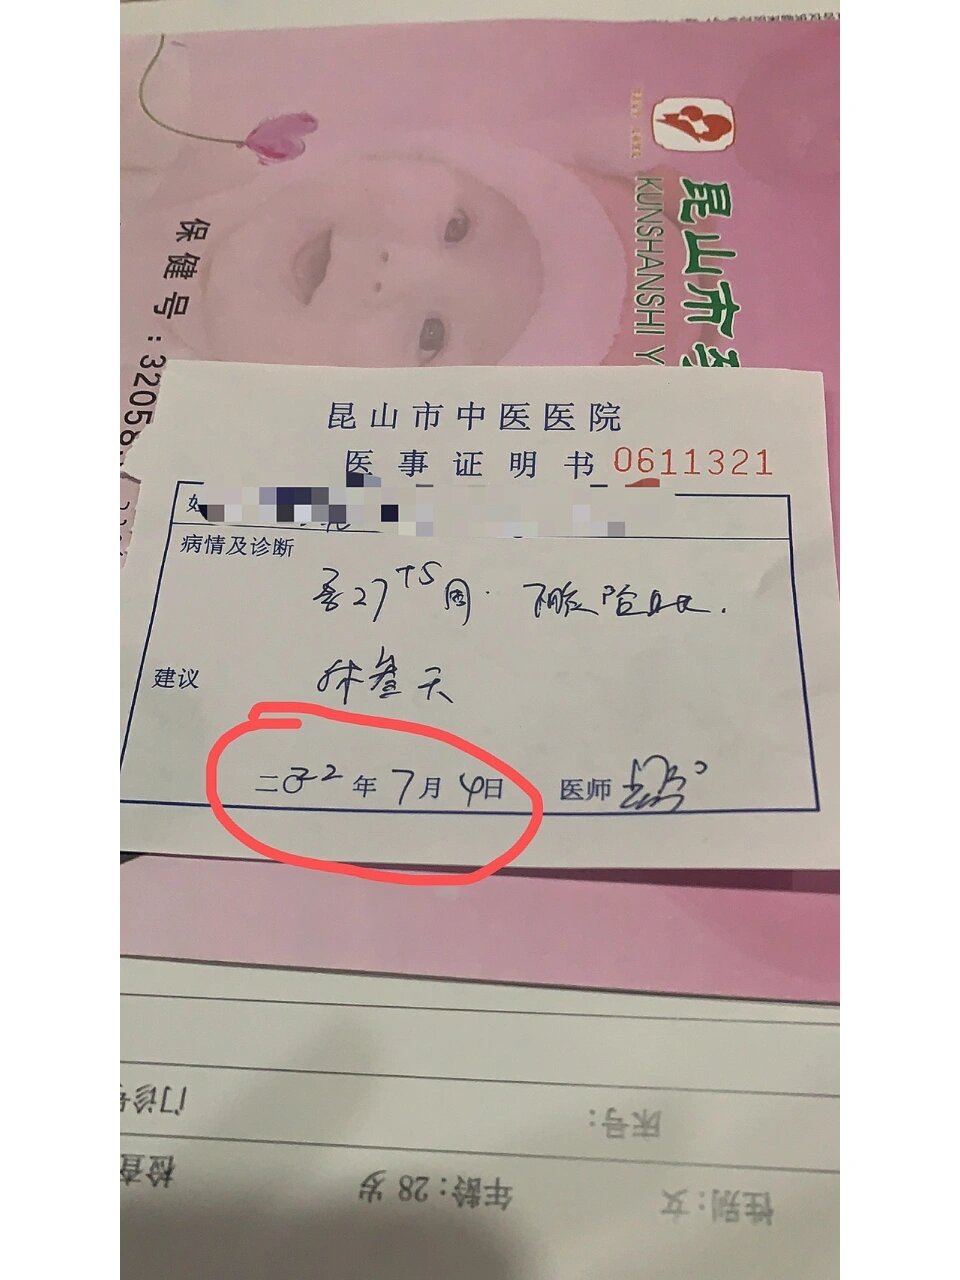 昆山市
KUNSHANSHI Y
保健号：32058
昆山市中医医院
医事证明书 0611321
病情及诊断
孕27+5周.
建议
休叁天
二〇二2年7月4日 医师
门诊
床号：
检查
年龄：28岁
性别：女